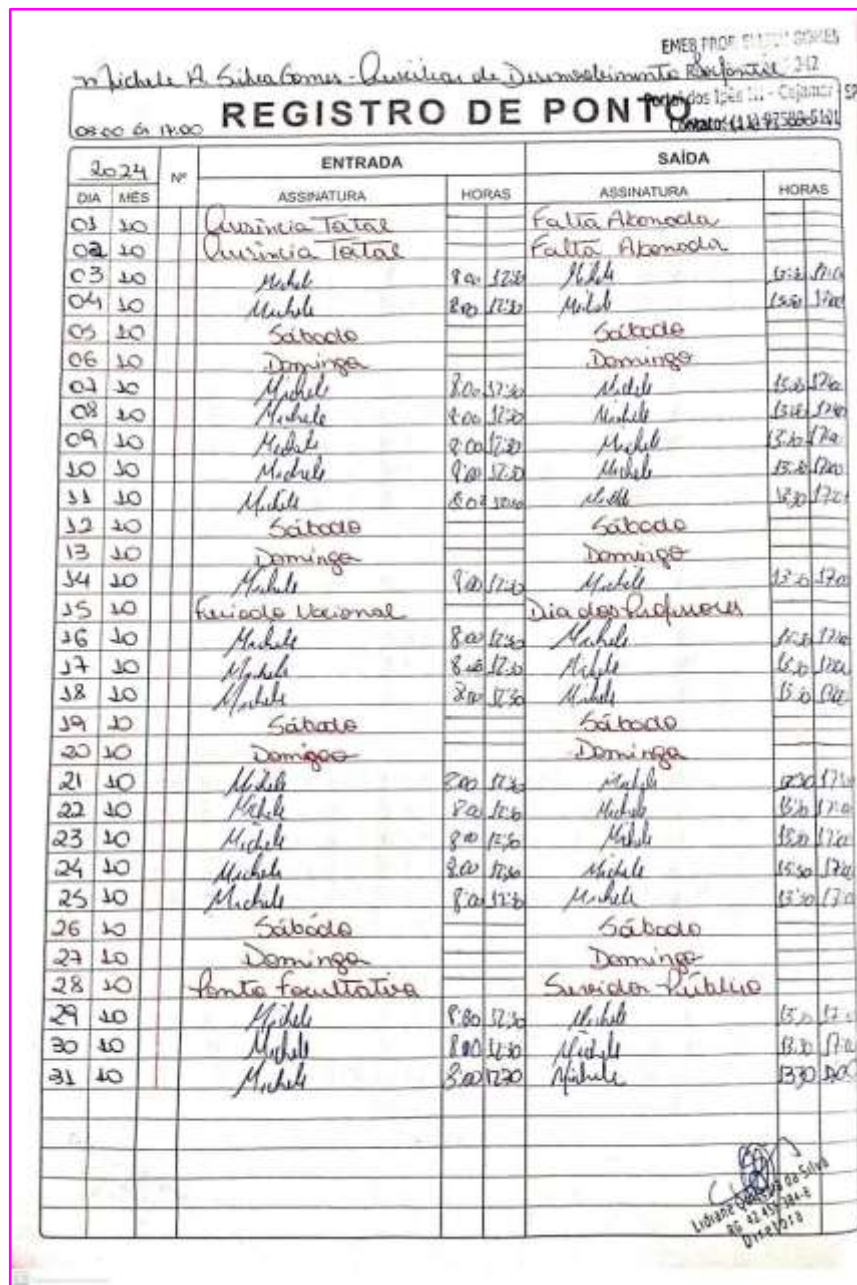 EMEB PROF. GOMES
Michele A. Silva Gomes - Auxiliar de Desenvolvimento Infantil
Portal dos Ipês III - Cajamar - SP
08:00 às 17:00 REGISTRO DE PONTO
Contato: (11)
2024 Nº ENTRADA SAÍDA
DIA MÊS ASSINATURA HORAS ASSINATURA HORAS
01 10 Ausência Total Falta Abonada
02 10 Ausência Total Falta Abonada
03 10 Michele 8:00 12:30 Michele 13:30 17:00
04 10 Michele 8:00 12:30 Michele 13:30 17:00
05 10 Sábado Sábado
06 10 Domingo Domingo
07 10 Michele 8:00 12:30 Michele 13:30 17:00
08 10 Michele 8:00 12:30 Michele 13:30 17:00
09 10 Michele 8:00 12:30 Michele 13:30 17:00
10 10 Michele 8:00 12:30 Michele 13:30 17:00
11 10 Michele 8:00 Michele 17:00
12 10 Sábado Sábado
13 10 Domingo Domingo
14 10 Michele 8:00 12:30 Michele 13:30 17:00
15 10 Feriado Nacional Dia dos Professores
16 10 Michele 8:00 12:30 Michele 13:30 17:00
17 10 Michele 8:00 12:30 Michele 13:30 17:00
18 10 Michele 8:00 12:30 Michele 13:30 17:00
19 10 Sábado Sábado
20 10 Domingo Domingo
21 10 Michele 8:00 12:30 Michele 13:30 17:00
22 10 Michele 8:00 12:30 Michele 13:30 17:00
23 10 Michele 8:00 12:30 Michele 13:30 17:00
24 10 Michele 8:00 12:30 Michele 13:30 17:00
25 10 Michele 8:00 12:30 Michele 13:30 17:00
26 10 Sábado Sábado
27 10 Domingo Domingo
28 10 Ponto Facultativo Servidor Público
29 10 Michele 8:00 12:30 Michele 13:30 17:00
30 10 Michele 8:00 12:30 Michele 13:30 17:00
31 10 Michele 8:00 12:30 Michele 13:30 17:00
Lidiane da Silva
RG
Diretora